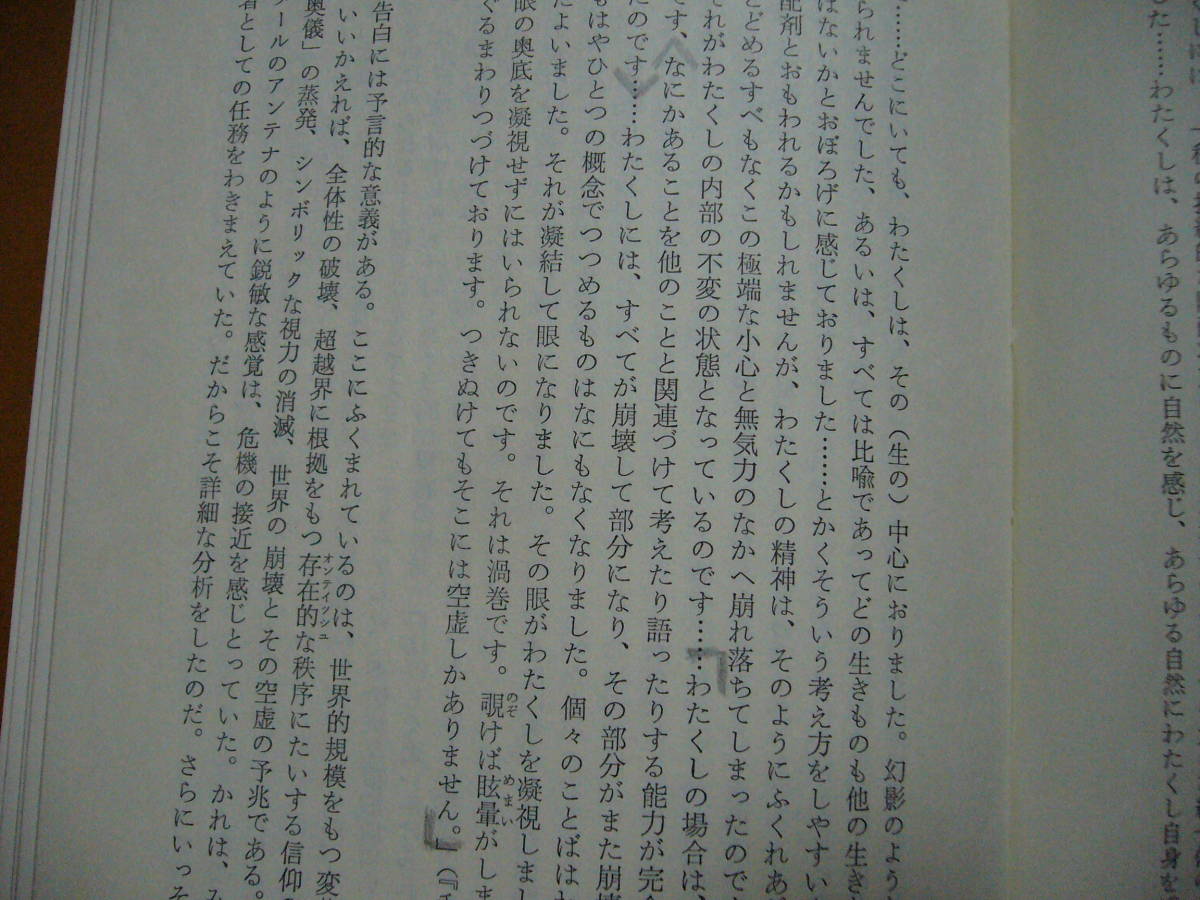 した……わたくしは、あらゆるものに自然を感じ、あらゆる自然にわたくし自身を
……どこにいても、わたくしは、その（生の）中心におりました。幻影のよう
られませんでした、あるいは、すべては比喩であってどの生きものも他の生き
はないかとおぼろげに感じておりました……とかくそういう考え方をしやすい
配剤とおもわれるかもしれませんが、わたくしの精神は、そのようにふくれあ
とどめるすべもなくこの極端な小心と無気力のなかへ崩れ落ちてしまったので
それがわたくしの内部の不変の状態となっているのです……わたくしの場合は、
です、なにかあることを他のことと関連づけて考えたり語ったりする能力が完
たのです……わたくしには、すべてが崩壊して部分になり、その部分がまた崩
もはやひとつの概念でつつめるものはなにもなくなりました。個々のことばは
たよいました。それが凝結して眼になりました。その眼がわたくしを凝視しまし
眼の奥底を凝視せずにはいられないのです。それは渦巻です。覗けば眩暈がしま
ぐるまわりつづけております。つきぬけてもそこには空虚しかありません。」（『
告白には予言的な意義がある。ここにふくまれているのは、世界的規模をもつ変
いいかえれば、全体性の破壊、超越界に根拠をもつ存在的な秩序にたいする信仰の
奥儀」の蒸発、シンボリックな視力の消滅、世界の崩壊とその空虚の予兆である。
ールのアンテナのように鋭敏な感覚は、危機の接近を感じとっていた。かれは、
者としての任務をわきまえていた。だからこそ詳細な分析をしたのだ。さらにいっそ